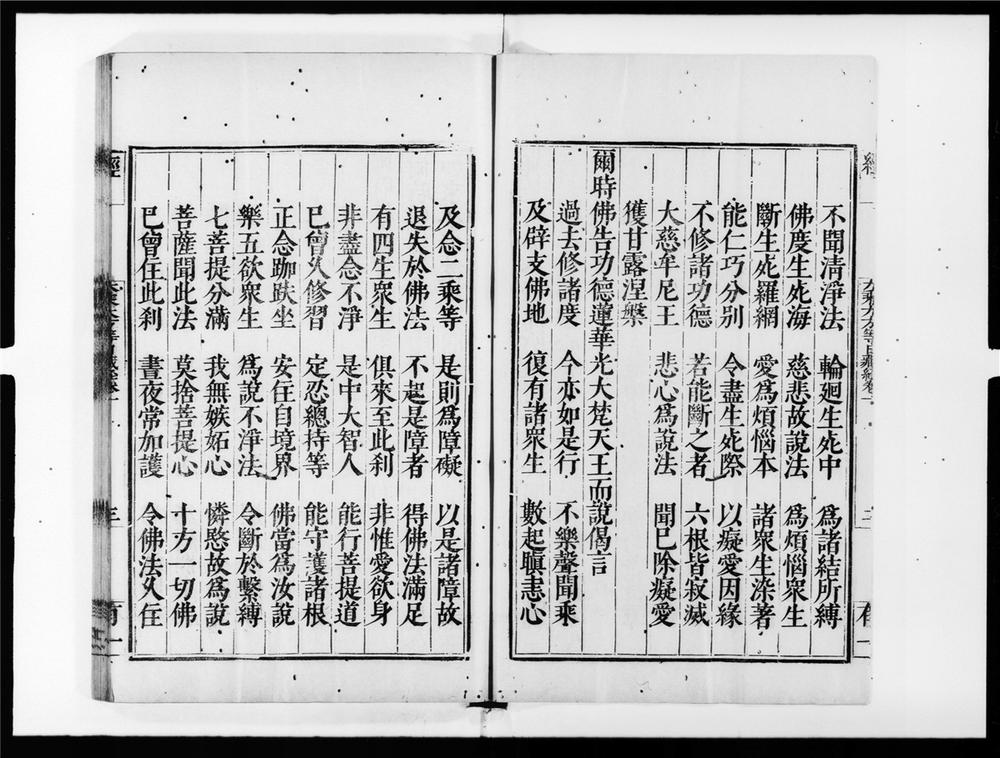 不聞清淨法　輪廻生死中　爲諸結所縛
佛度生死海　慈悲故說法　爲煩惱衆生
斷生死羅網　愛爲煩惱本　諸衆生染著
能仁巧分別　令盡生死際　以癡愛因緣
不修諸功德　若能斷之者　六根皆寂滅
大慈牟尼王　悲心爲說法　聞已除癡愛
獲甘露涅槃
爾時佛告功德蓮華光大梵天王而說偈言
過去修諸度　今亦如是行　不樂聲聞乘
及辟支佛地　復有諸衆生　數起瞋恚心
及念二乘等　是則爲障礙　以是諸障故
退失於佛法　不起是障者　得佛法滿足
有四生衆生　俱來至此刹　非惟愛欲身
非盡念不淨　是中大智人　能行菩提道
已曾久修習　定忍總持等　能守護諸根
正念跏趺坐　安住自境界　佛當爲汝說
樂五欲衆生　爲說不淨法　令斷於繫縛
七菩提分滿　我無嫉妬心　憐愍故爲說
菩薩聞此法　莫捨菩提心　十方一切佛
已曾住此刹　晝夜常加護　令佛法久住
經
三